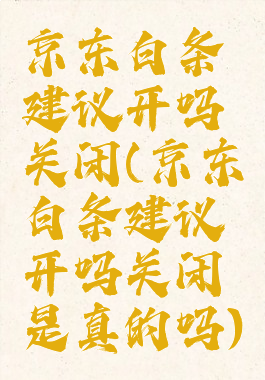 京东白条
建议开吗
关闭(京东
白条建议
开吗关闭
是真的吗)